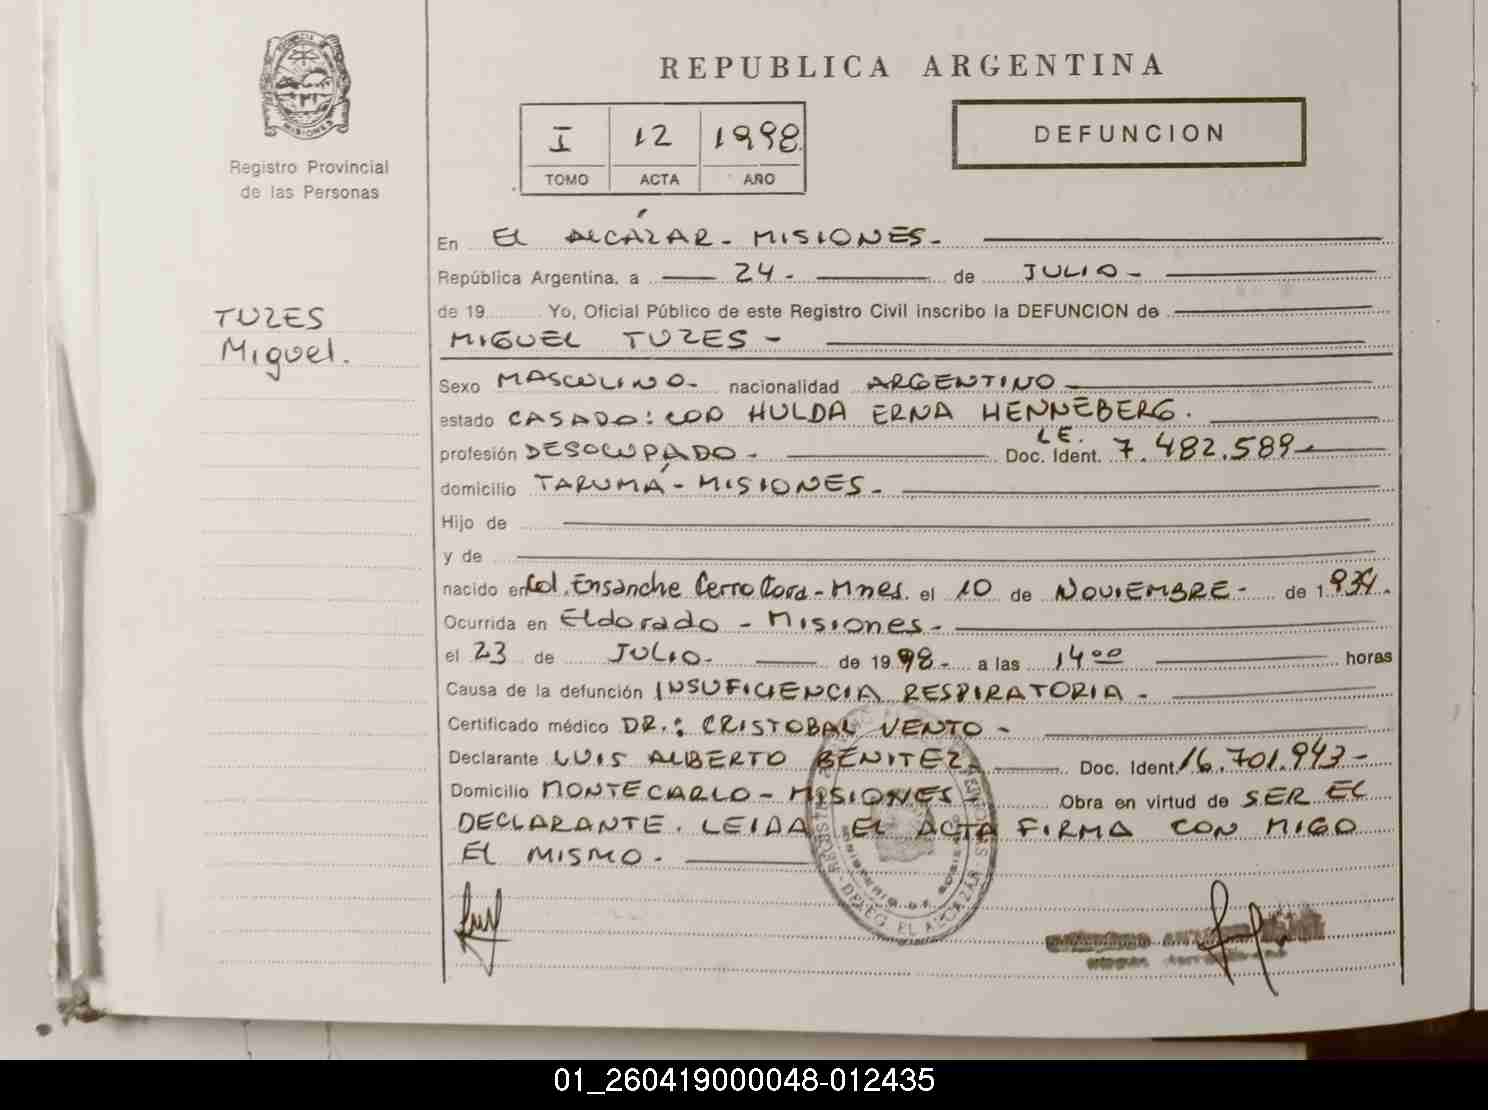 REPUBLICA ARGENTINA
I 12 1998
TOMO ACTA AÑO
DEFUNCION
PROVINCIA DE MISIONES
Registro Provincial
de las Personas
TUZES
Miguel.
En EL ALCÁZAR - MISIONES -
República Argentina, a 24 - de JULIO -
de 19 Yo, Oficial Público de este Registro Civil inscribo la DEFUNCION de
MIGUEL TUZES -
Sexo MASCULINO - nacionalidad ARGENTINO -
estado CASADO: COD HULDA ERNA HENNEBERG.
profesión DESOCUPADO - Doc. Ident. L.E. 7.482.589 -
domicilio TARUMÁ - MISIONES -
Hijo de
y de
nacido en Col. Ensanche Cerro Cora - Mnes. el 10 de NOVIEMBRE - de 1.934.
Ocurrida en Eldorado - Misiones -
el 23 de JULIO - de 19 98 - a las 14 00 horas
Causa de la defunción INSUFICIENCIA RESPIRATORIA -
Certificado médico DR.: CRISTOBAL VENTO -
Declarante LUIS ALBERTO BENITEZ - Doc. Ident. 16.701.943 -
Domicilio MONTECARLO - MISIONES Obra en virtud de SER EL
DECLARANTE. LEIDA EL ACTA FIRMA CON MIGO
EL MISMO -
DELEG. EL ALCAZAR
01_260419000048-012435